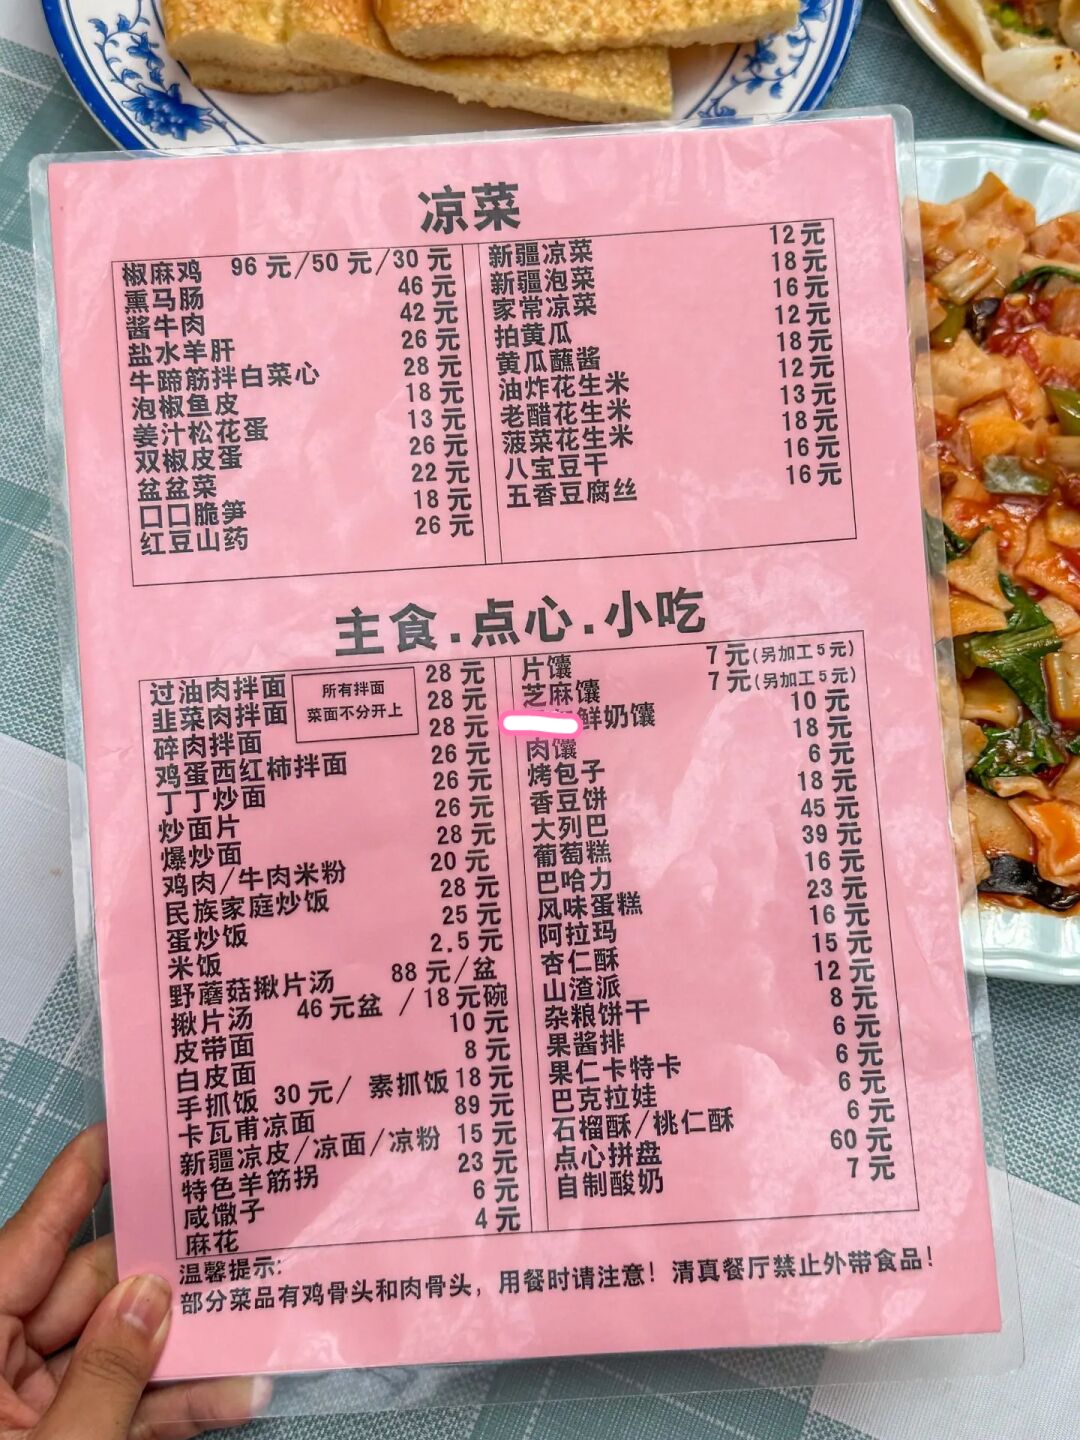 凉菜
椒麻鸡 96元/50元/30元
熏马肠 46元
酱牛肉 42元
盐水羊肝 26元
牛蹄筋拌白菜心 28元
泡椒鱼皮 18元
姜汁松花蛋 13元
双椒皮蛋 26元
盆盆菜 22元
口口脆笋 18元
红豆山药 26元
新疆凉菜 12元
新疆泡菜 18元
家常凉菜 16元
拍黄瓜 12元
黄瓜蘸酱 18元
油炸花生米 12元
老醋花生米 13元
菠菜花生米 18元
八宝豆干 16元
五香豆腐丝 16元
主食.点心.小吃
过油肉拌面 28元
韭菜肉拌面 28元
碎肉拌面 28元
所有拌面
菜面不分开上
鸡蛋西红柿拌面 26元
丁丁炒面 26元
炒面片 26元
爆炒面 28元
鸡肉/牛肉米粉 20元
民族家庭炒饭 28元
蛋炒饭 25元
米饭 2.5元
野蘑菇揪片汤 88元/盆
揪片汤 46元盆 /18元碗
皮带面 10元
白皮面 8元
手抓饭 30元/ 素抓饭 18元
卡瓦甫凉面 89元
新疆凉皮/凉面/凉粉 15元
特色羊筋拐 23元
咸馓子 6元
麻花 4元
片馕 7元(另加工5元)
芝麻馕 7元(另加工5元)
鲜奶馕 10元
肉馕 18元
烤包子 6元
香豆饼 18元
大列巴 45元
葡萄糕 39元
巴哈力 16元
风味蛋糕 23元
阿拉玛 16元
杏仁酥 15元
山渣派 12元
杂粮饼干 8元
果酱排 6元
果仁卡特卡 6元
巴克拉娃 6元
石榴酥/桃仁酥 6元
点心拼盘 60元
自制酸奶 7元
温馨提示:
部分菜品有鸡骨头和肉骨头，用餐时请注意！清真餐厅禁止外带食品！